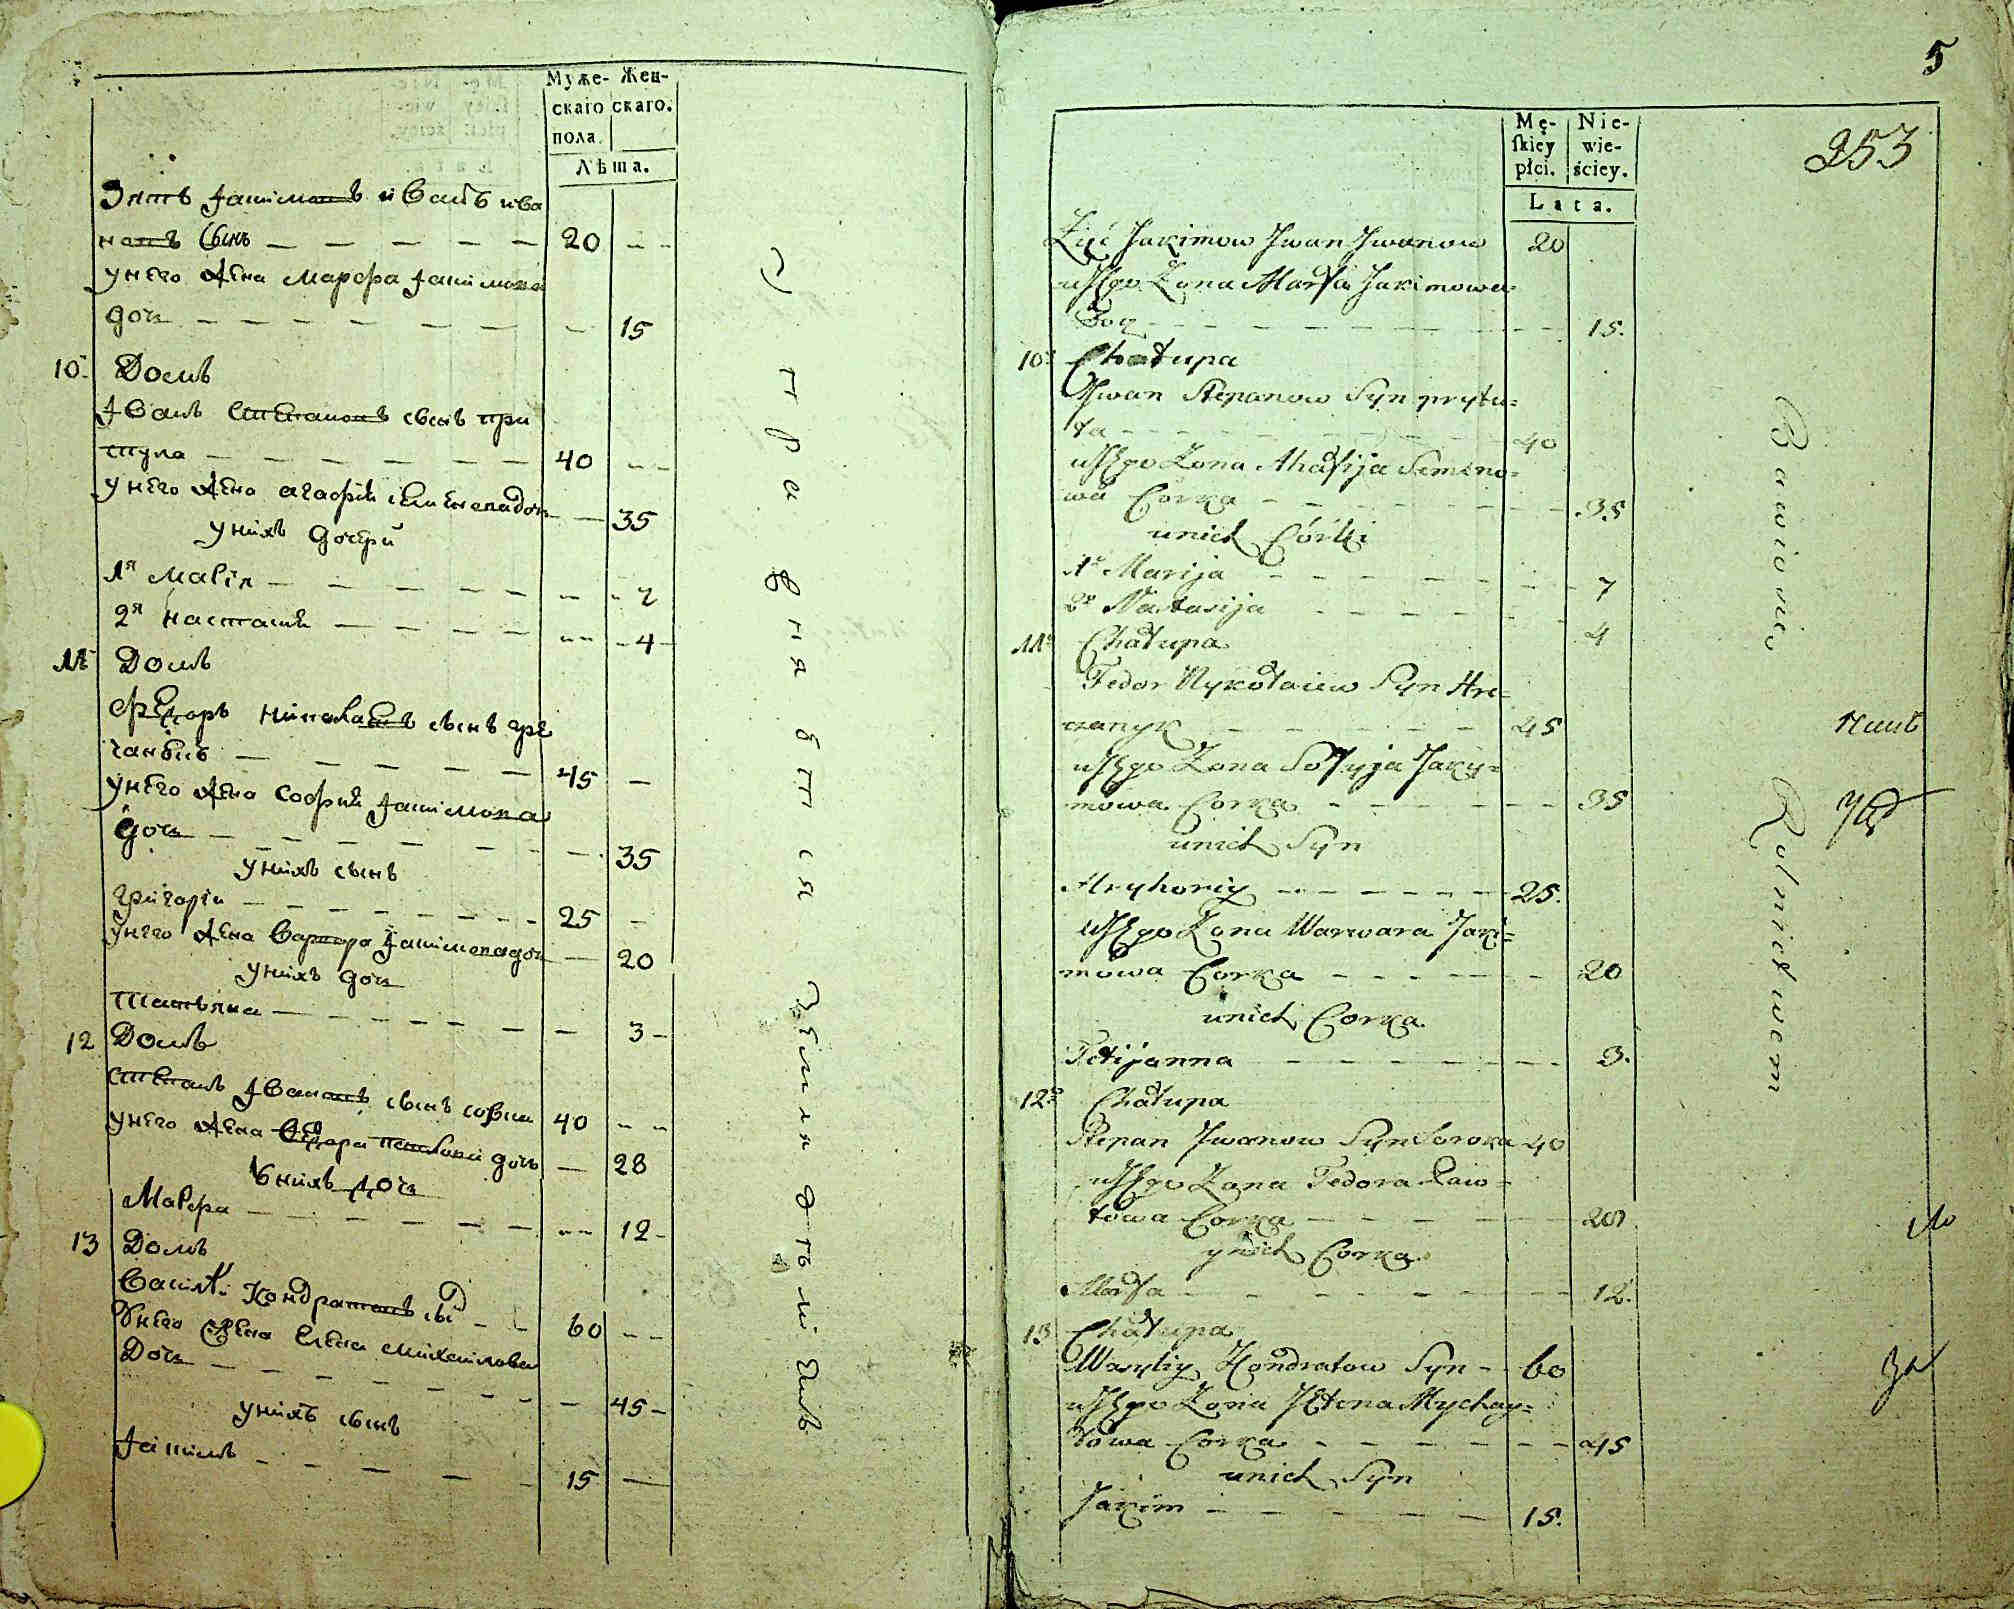 Муже- Жен-
скаго скаго.
пола.
Лѣта.
Зять Якимовъ иванъ ива
новъ сынъ — — — — — 20 — —
унего жена Марфа Якимова
доч — — — — — — — — 15
10. Домъ
Іванъ Степановъ сынъ при
тула — — — — — — 40 — —
унего жена агафия семенова доч — — 35
унихъ дочери
1я Марія — — — — — — — 7
2я настасия — — — — — — — 4
11 Домъ
Федоръ николаевъ сынъ гре
чаникъ — — — — — — 45 —
унего жена София Якимова
доч — — — — — — — — 35
унихъ сынъ
григорій — — — — — — — 25 —
унего жена варвара Якимова доч — 20
унихъ доч
татьяна — — — — — — — 3
12 Домъ
степанъ Івановъ сынъ сорока 40 — —
унего жена Федора павлова дочь — 28
унихъ доч
Марфа — — — — — — — 12
13 Домъ
Василий Кондратовъ сы — — 60 — —
Унего жена елена михайлова
Доч — — — — — — — — 45
унихъ сынъ
Якимъ — — — — — — 15 —
правняются земледѣліемъ
5
253
Mę- Nie-
skiey wie-
płci. ściey.
Lata.
Zięć Jakimow Jwan Jwanow 20
u Jego Zona Marfa Jakimowa
Doc — — — — — — — — 15.
10. Chałupa
Jwan Stepanow Syn prytu=
ła — — — — — — — 40
u Jego Zona Ahafija Semeno=
wa Corka — — — — — — 35
unich Córki
1a Marija — — — — — — — 7
2a Nastasija — — — — — — 4
11. Chałupa
Fedor Nykołaiew Syn Hre=
czanyk — — — — — — 45
u Jego Zona Sofyja Jaky=
mowa Corka — — — — — 35
unich Syn
Hryhoriy — — — — — — 25.
u Jego Zona Warwara Jaki=
mowa Corka — — — — — 20
unich Corka
Tetijanna — — — — — — — 3.
12. Chałupa
Stepan Jwanow Syn Soroka 40
u Jego Zona Fedora Paw=
łowa Corka — — — — — 28
ynich Corka
Marfa — — — — — — — 12.
13 Chałupa
Wasyliy Kondratow Syn — 60
u Jego Zona Jełena Mychay=
łowa Corka — — — — — — 45
unich Syn
Jakim — — — — — — 15.
Bawią się Rolnictwem